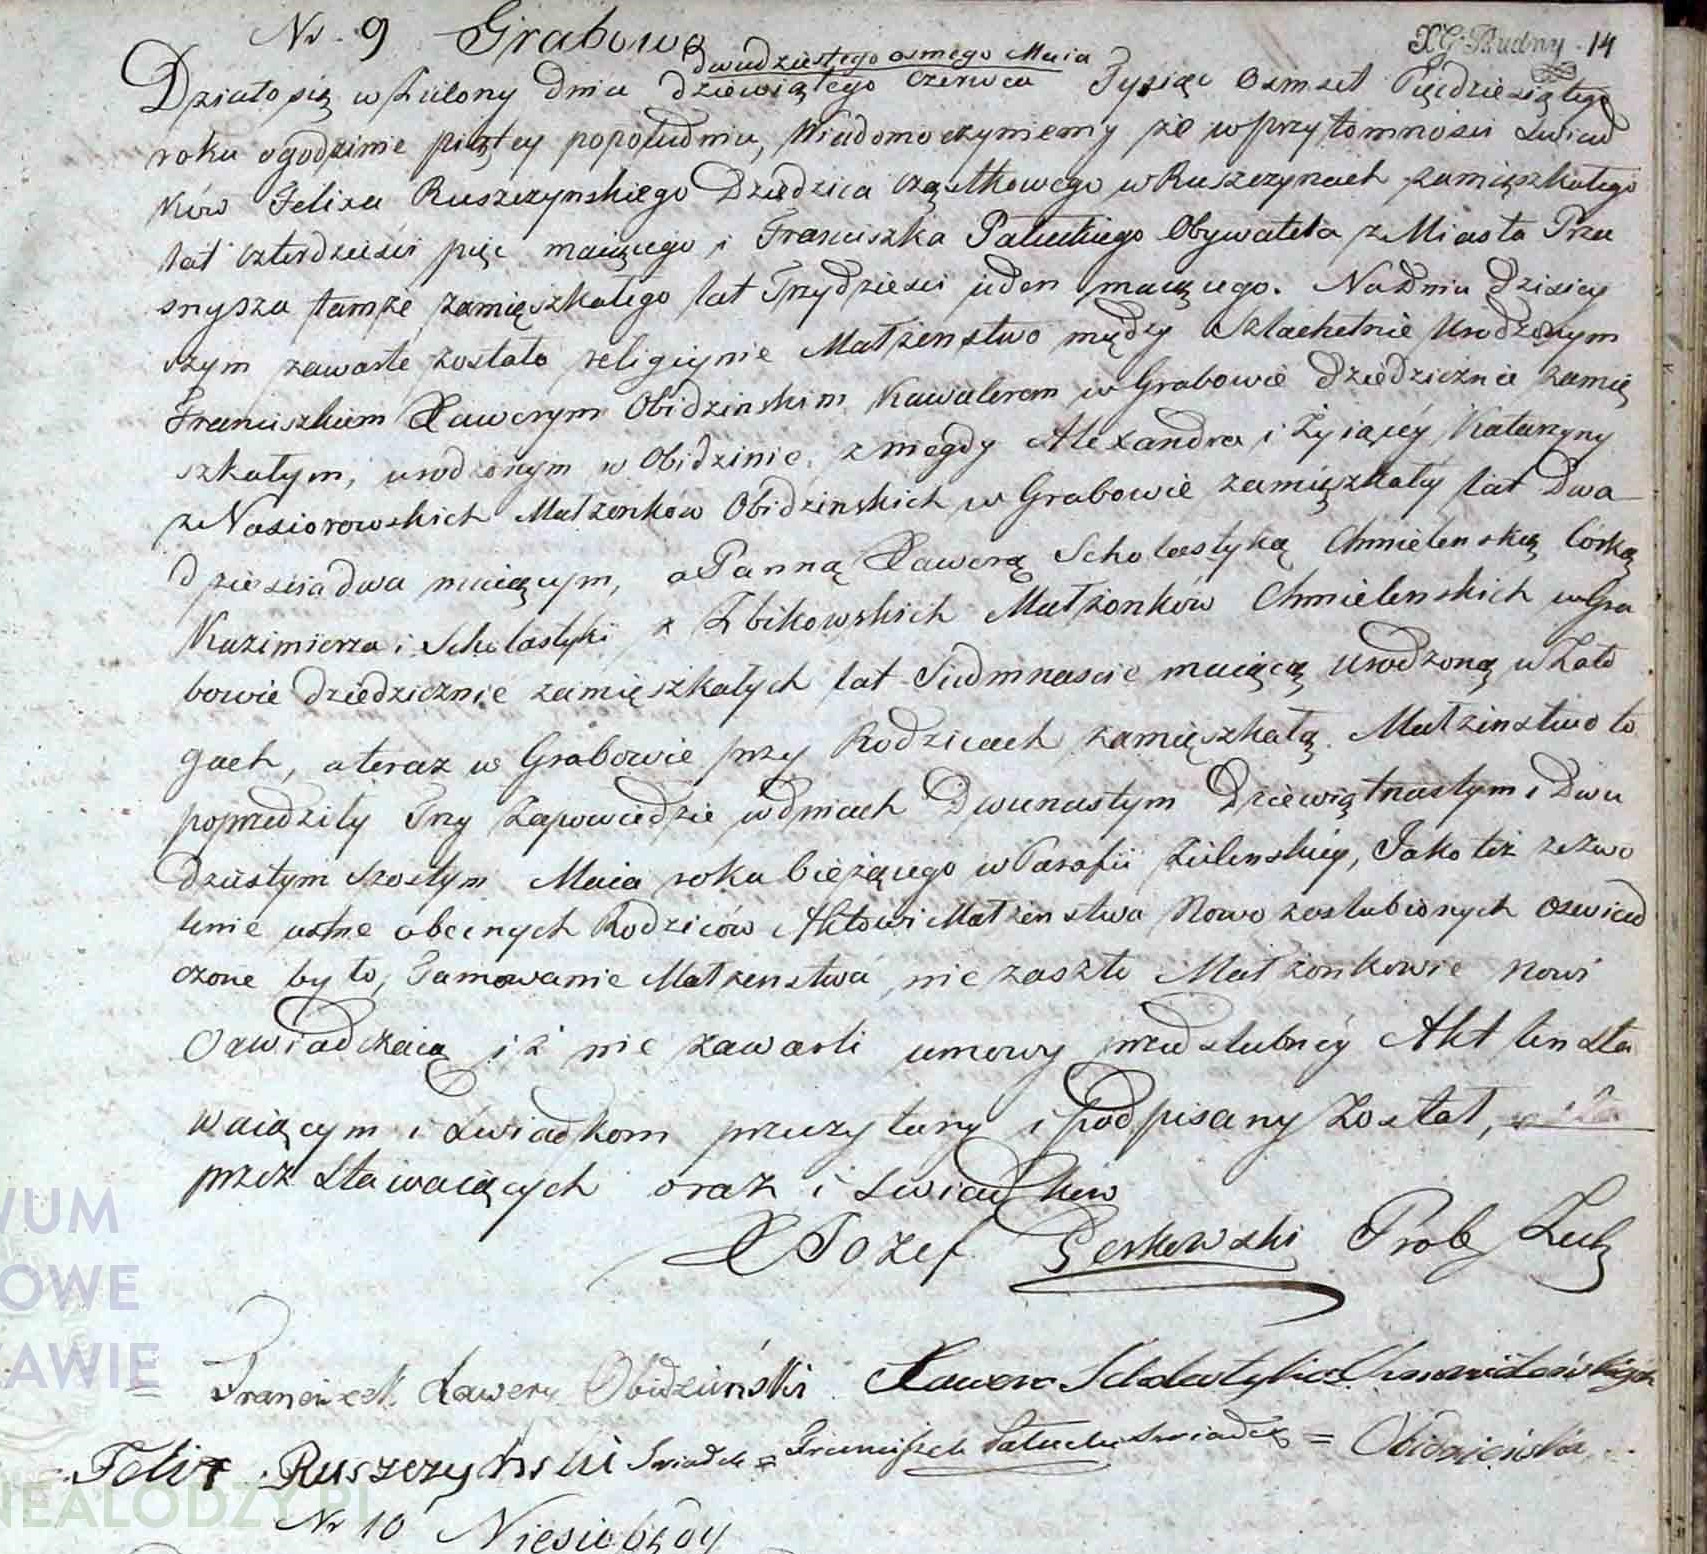 Nr. 9 Grabowo
XG Budny 14
dwudziestego osmego Maia
Działo się w Zielony dnia dziewiątego Czerwca Tysiąc Osmset Pięćdziesiątego
roku o godzinie piątey popołudniu, Wiadomo czyniemy że w przytomności Swiad
ków Felixa Ruszczynskiego Dziedzica cząstkowego w Ruszczynach zamięszkałego
lat czterdzieści pięc maiącego i Franciszka Pałuckiego Obywatela z Miasta Prza
snysza tamże zamięszkałego lat Trzydzieści ieden maiącego. Na Dniu dzisiey
szym zawarte zostało religiynie Małżenstwo między Szlachetnie Urodzonym
Franciszkiem Xawerym Obidzinskim Kawalerem w Grabowie dziedzicznie zamię
szkałym, urodzonym w Obidzinie, z niegdy Alexandra i Żyiącéy Katarzyny
z Nasiorowskich Małżonków Obidzinskich w Grabowie zamięszkałéy lat Dwa
dzieścia dwa maiącym, a Panną Xawerą Scholastyką Chmielenską Córką
Kazimierza i Scholastyki z Żbikowskich Małżonków Chmielenskich w Gra
bowie dziedzicznie zamięszkałych lat Siedmnaście maiącą urodzoną w Zało
gach, a teraz w Grabowie przy Rodzicach zamięszkałą. Małżenstwo to
poprzedziły Trzy Zapowiedzie w dniach Dwunastym Dziewiątnastym i Dwu
dziestym szostym Maia roku bieżącego w Parafii Zielenskiéy, Jako też zezwo
lenie ustne obecnych Rodziców Aktowi Małżenstwa Nowo zaslubionych oswiad
czone było, Tamowanie Małżenstwa nie zaszło Małżonkowie Nowi
Oswiadczaią iż nie zawarli umowy przedslubnéy Akt ten sta
waiącym i Swiadkom przeczytany i podpisany został,
przez Stawaiących oraz i Swiadków
X Józef Prob Ziel
= Franciszek Xawery Obidziński Xawera Scholastyka
= Felix Ruszczyński Swiadek = Franciszek Pałucki Swiadek = Obidzieńska
Nr 10 Niesiobędy
WUM
OWE
AWIE
NEALODZY.PL